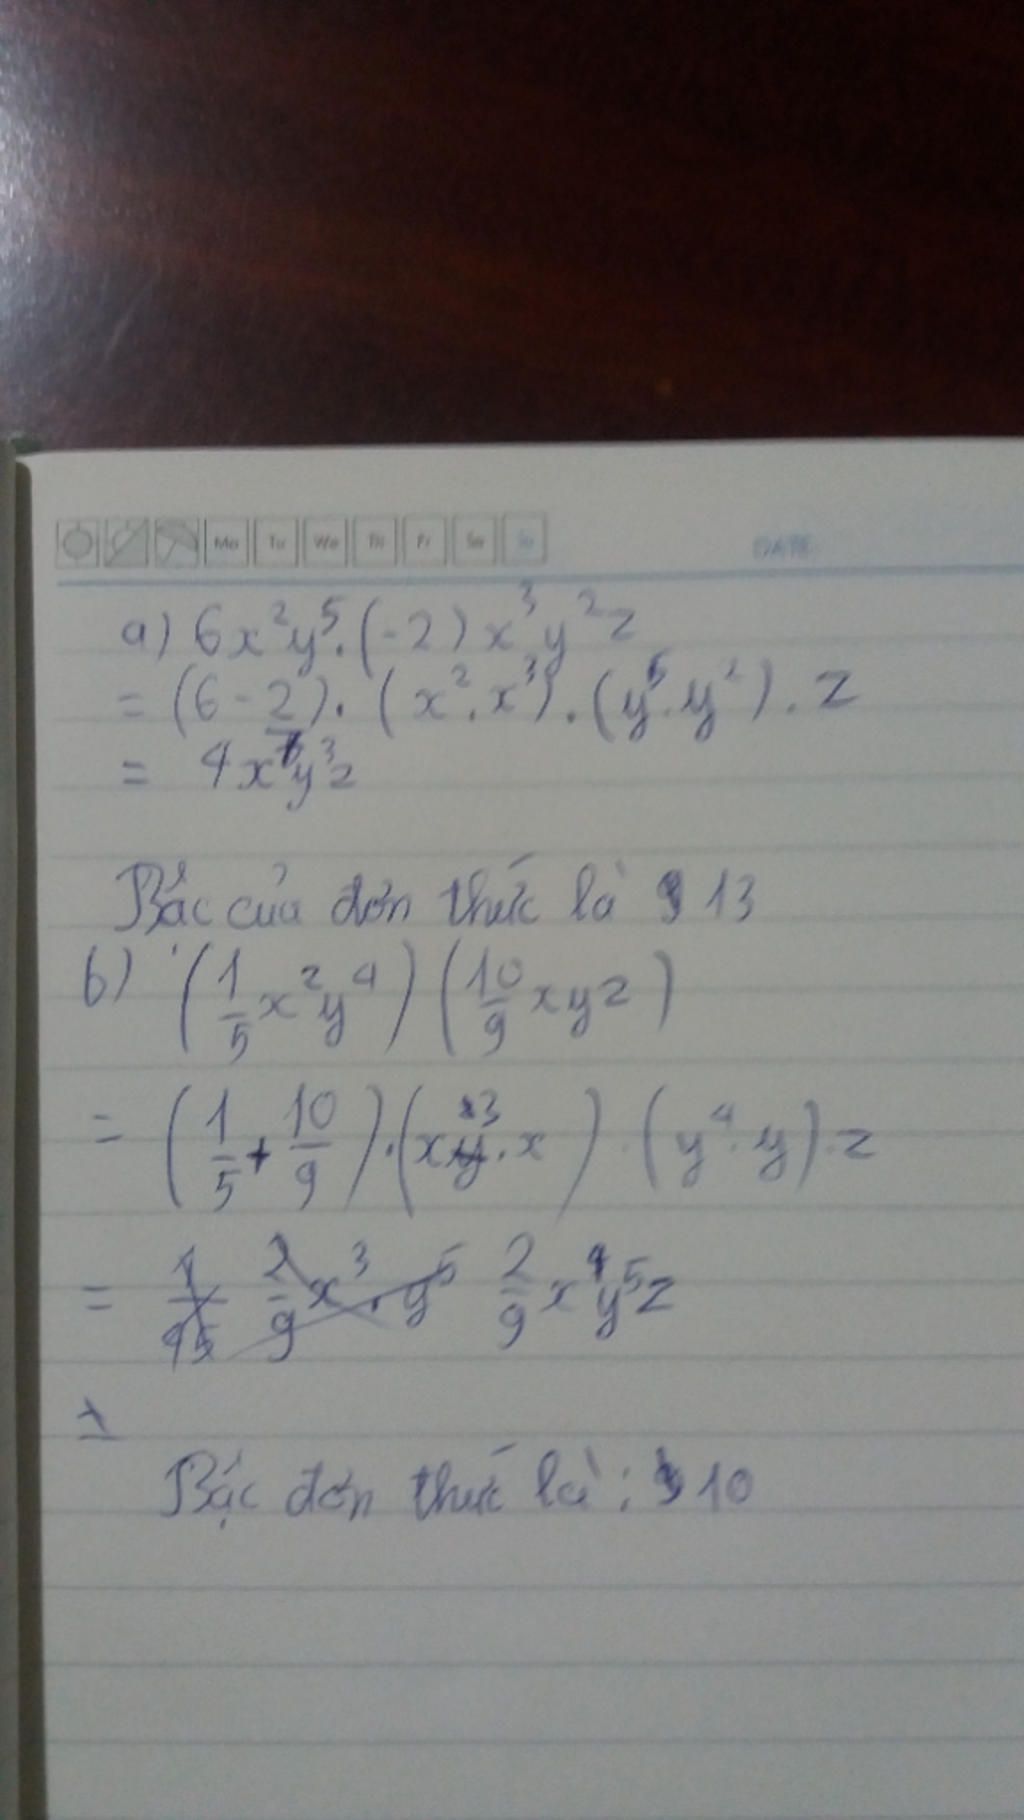 Mo Tu We Th Fr Sa Su DATE
a) 6x²y⁵.(-2)x³y²z
= (6-2).(x².x³).(y⁵.y²).z
= 4x y³z
Bấc của đơn thức là 13
b) (1/5 x²y⁴)(10/9 xyz)
= (1/5 + 10/9).(x³.x).(y⁴.y).z
= 2/9 x³.y⁵ 2/9 x⁴y⁵z
Bậc đơn thức là: 10